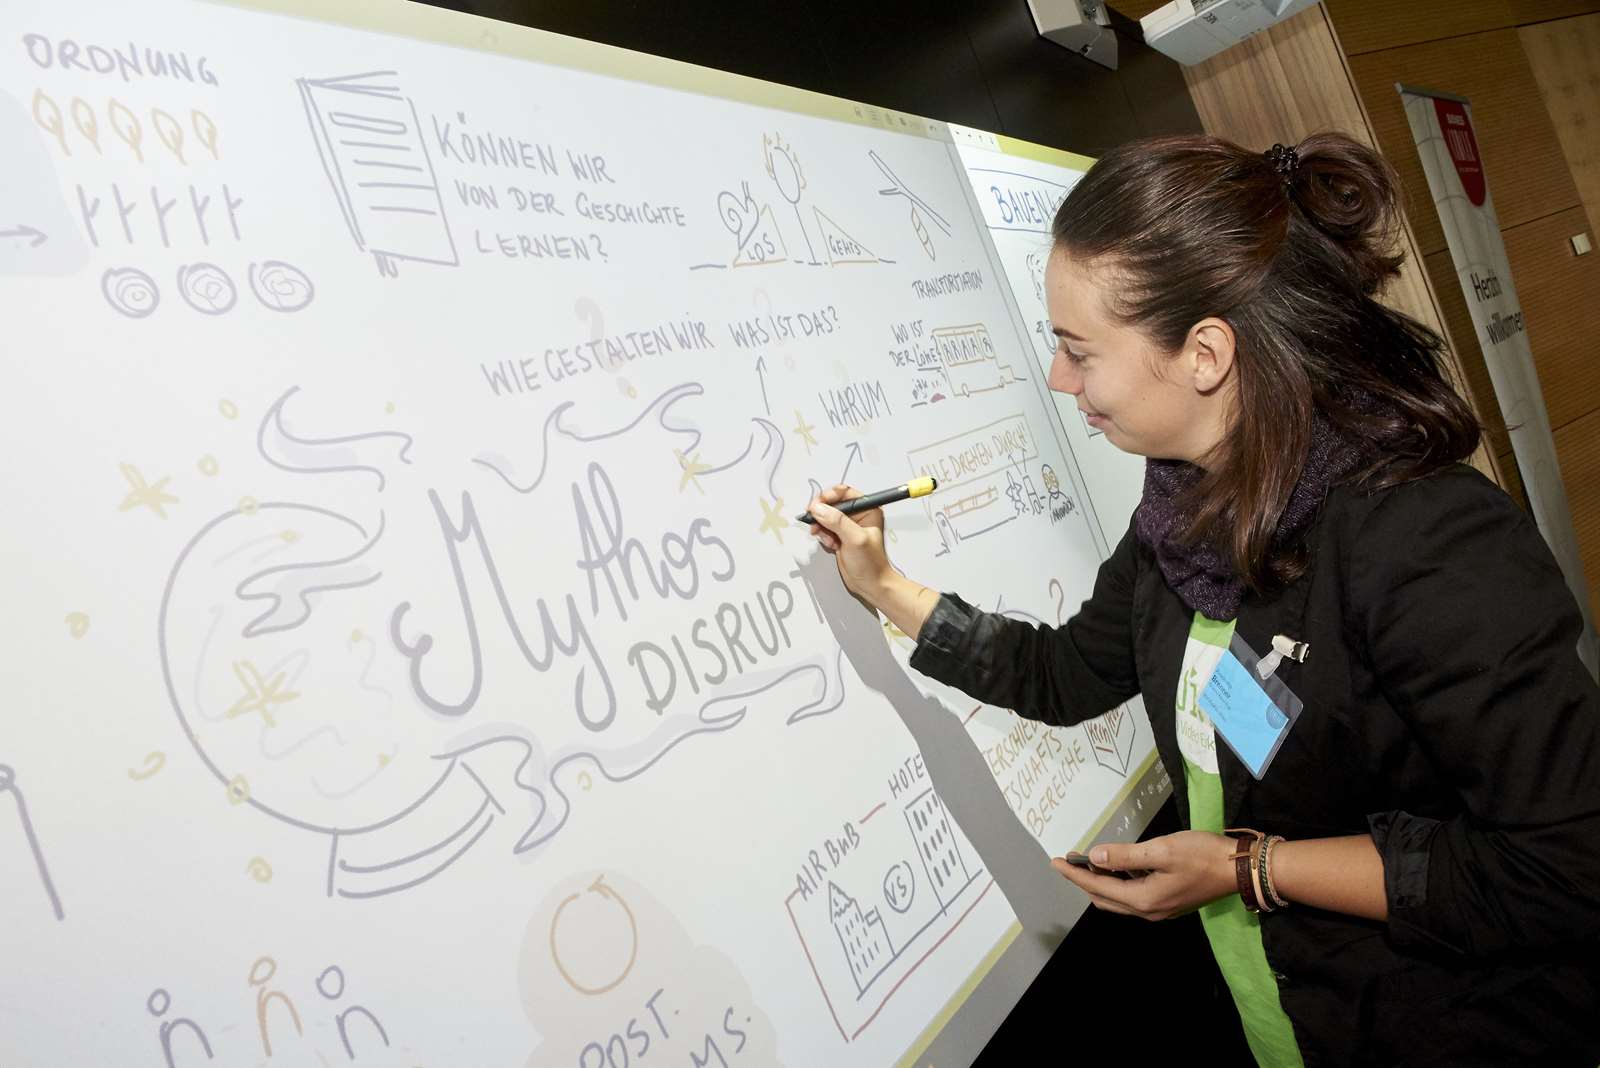 ORDNUNG
KÖNNEN WIR
VON DER GESCHICHTE
LERNEN?
LOS
GEHTS
TRANSFORMATION
BAUEN
WIE GESTALTEN WIR
WAS IST DAS?
WO IST
DER LÖWE?
WARUM
ALLE DREHEN DURCH!
Mythos
DISRUPT
BEREICHE
HOTE
AIRBnB
VS
POST.
Brenner
Herzlich
willkommen